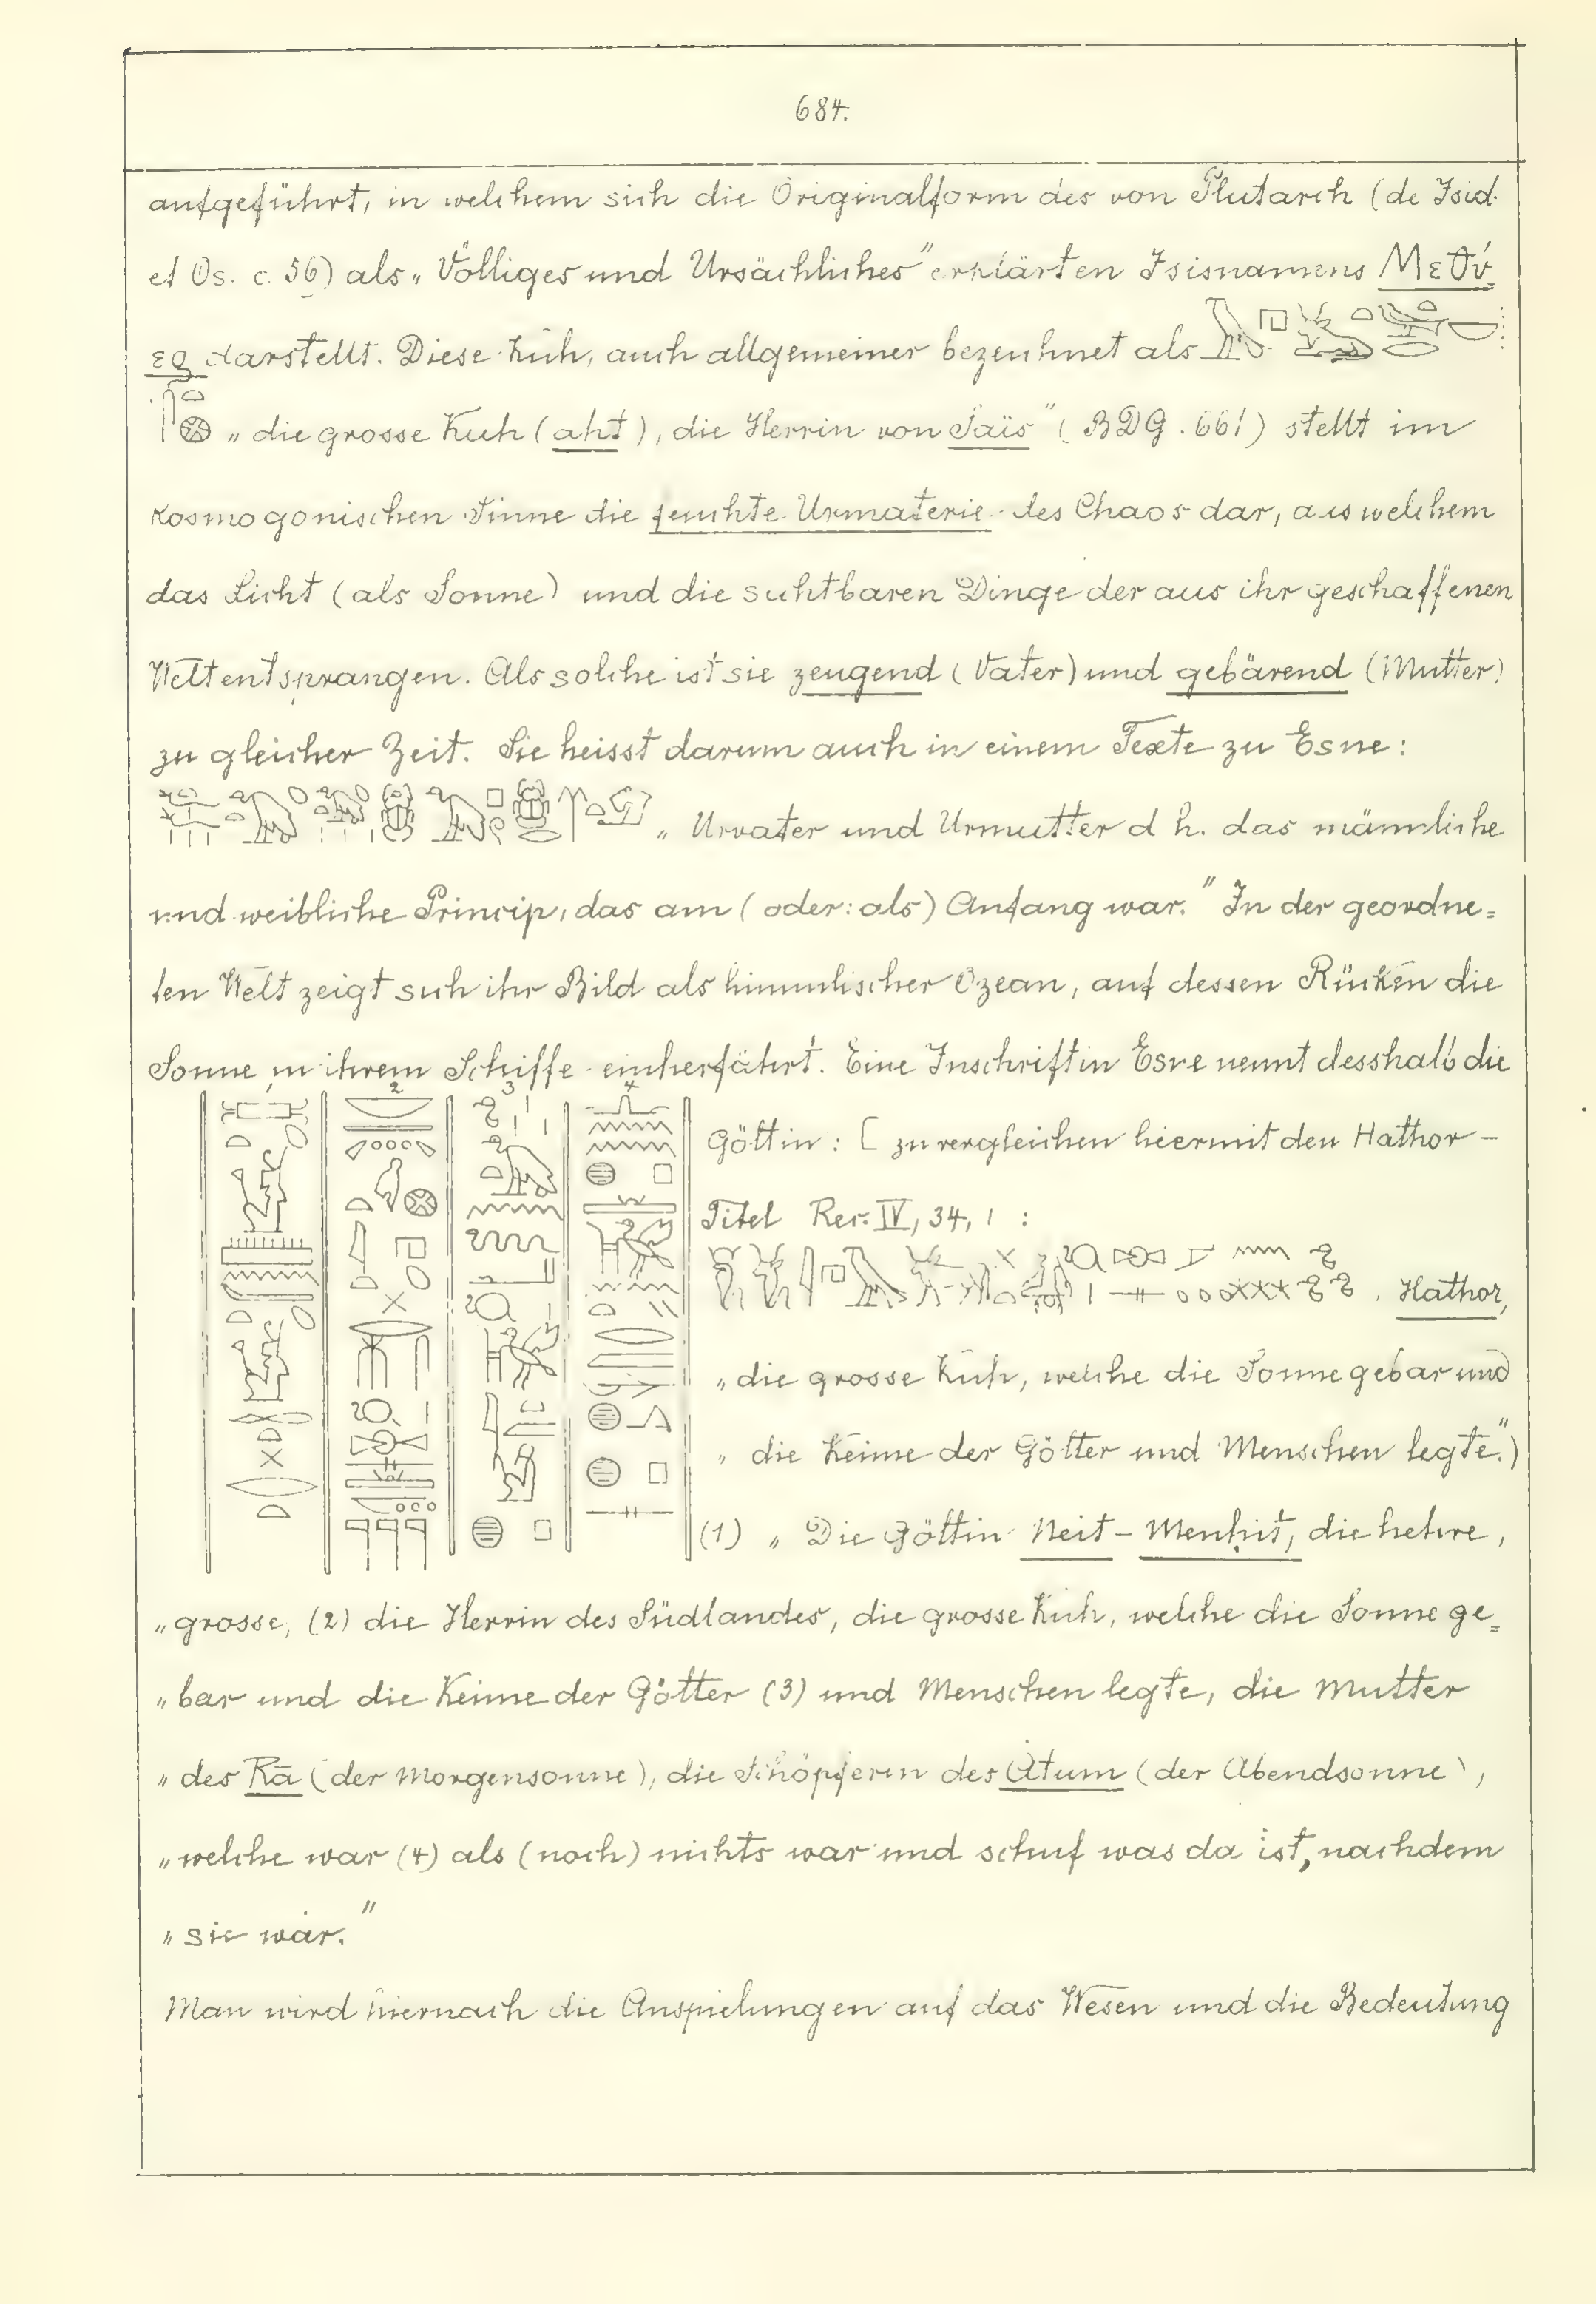 684.
aufgeführt, in welchem sich die Originalform des von Plutarch (de Isid.
et Os. c. 56) als „Völliges und Ursächliches" erklärten Isisnamens Μεθύ-
ερ darstellt. Diese Kuh, auch allgemeiner bezeichnet als
„die grosse Kuh (aht), die Herrin von Saïs" (BDG. 661) stellt im
kosmogonischen Sinne die feuchte Urmaterie des Chaos dar, aus welchem
das Licht (als Sonne) und die sichtbaren Dinge der aus ihr geschaffenen
Welt entsprangen. Als solche ist sie zeugend (Vater) und gebärend (Mutter)
zu gleicher Zeit. Sie heisst darum auch in einem Texte zu Esne:
„Urvater und Urmutter d h. das männliche
und weibliche Princip, das am (oder: als) Anfang war." In der geordne=
ten Welt zeigt sich ihr Bild als himmlischer Ozean, auf dessen Rücken die
Sonne in ihrem Schiffe einherfährt. Eine Inschrift in Esne nennt desshalb die
1 2 3 4
Göttin: [zu vergleichen hiermit den Hathor-
Titel Rec. IV, 34, 1 :
Hathor,
„die grosse Kuh, welche die Sonne gebar und
„die Keime der Götter und Menschen legte.")
(1) „Die Göttin Neit-Menḥit, die hehre,
„grosse, (2) die Herrin des Südlandes, die grosse Kuh, welche die Sonne ge=
„bar und die Keime der Götter (3) und Menschen legte, die Mutter
„des Rā (der Morgensonne), die Schöpferin des Atum (der Abendsonne),
„welche war (4) als (noch) nichts war und schuf was da ist, nachdem
„sie war."
Man wird hiernach die Anspielungen auf das Wesen und die Bedeutung